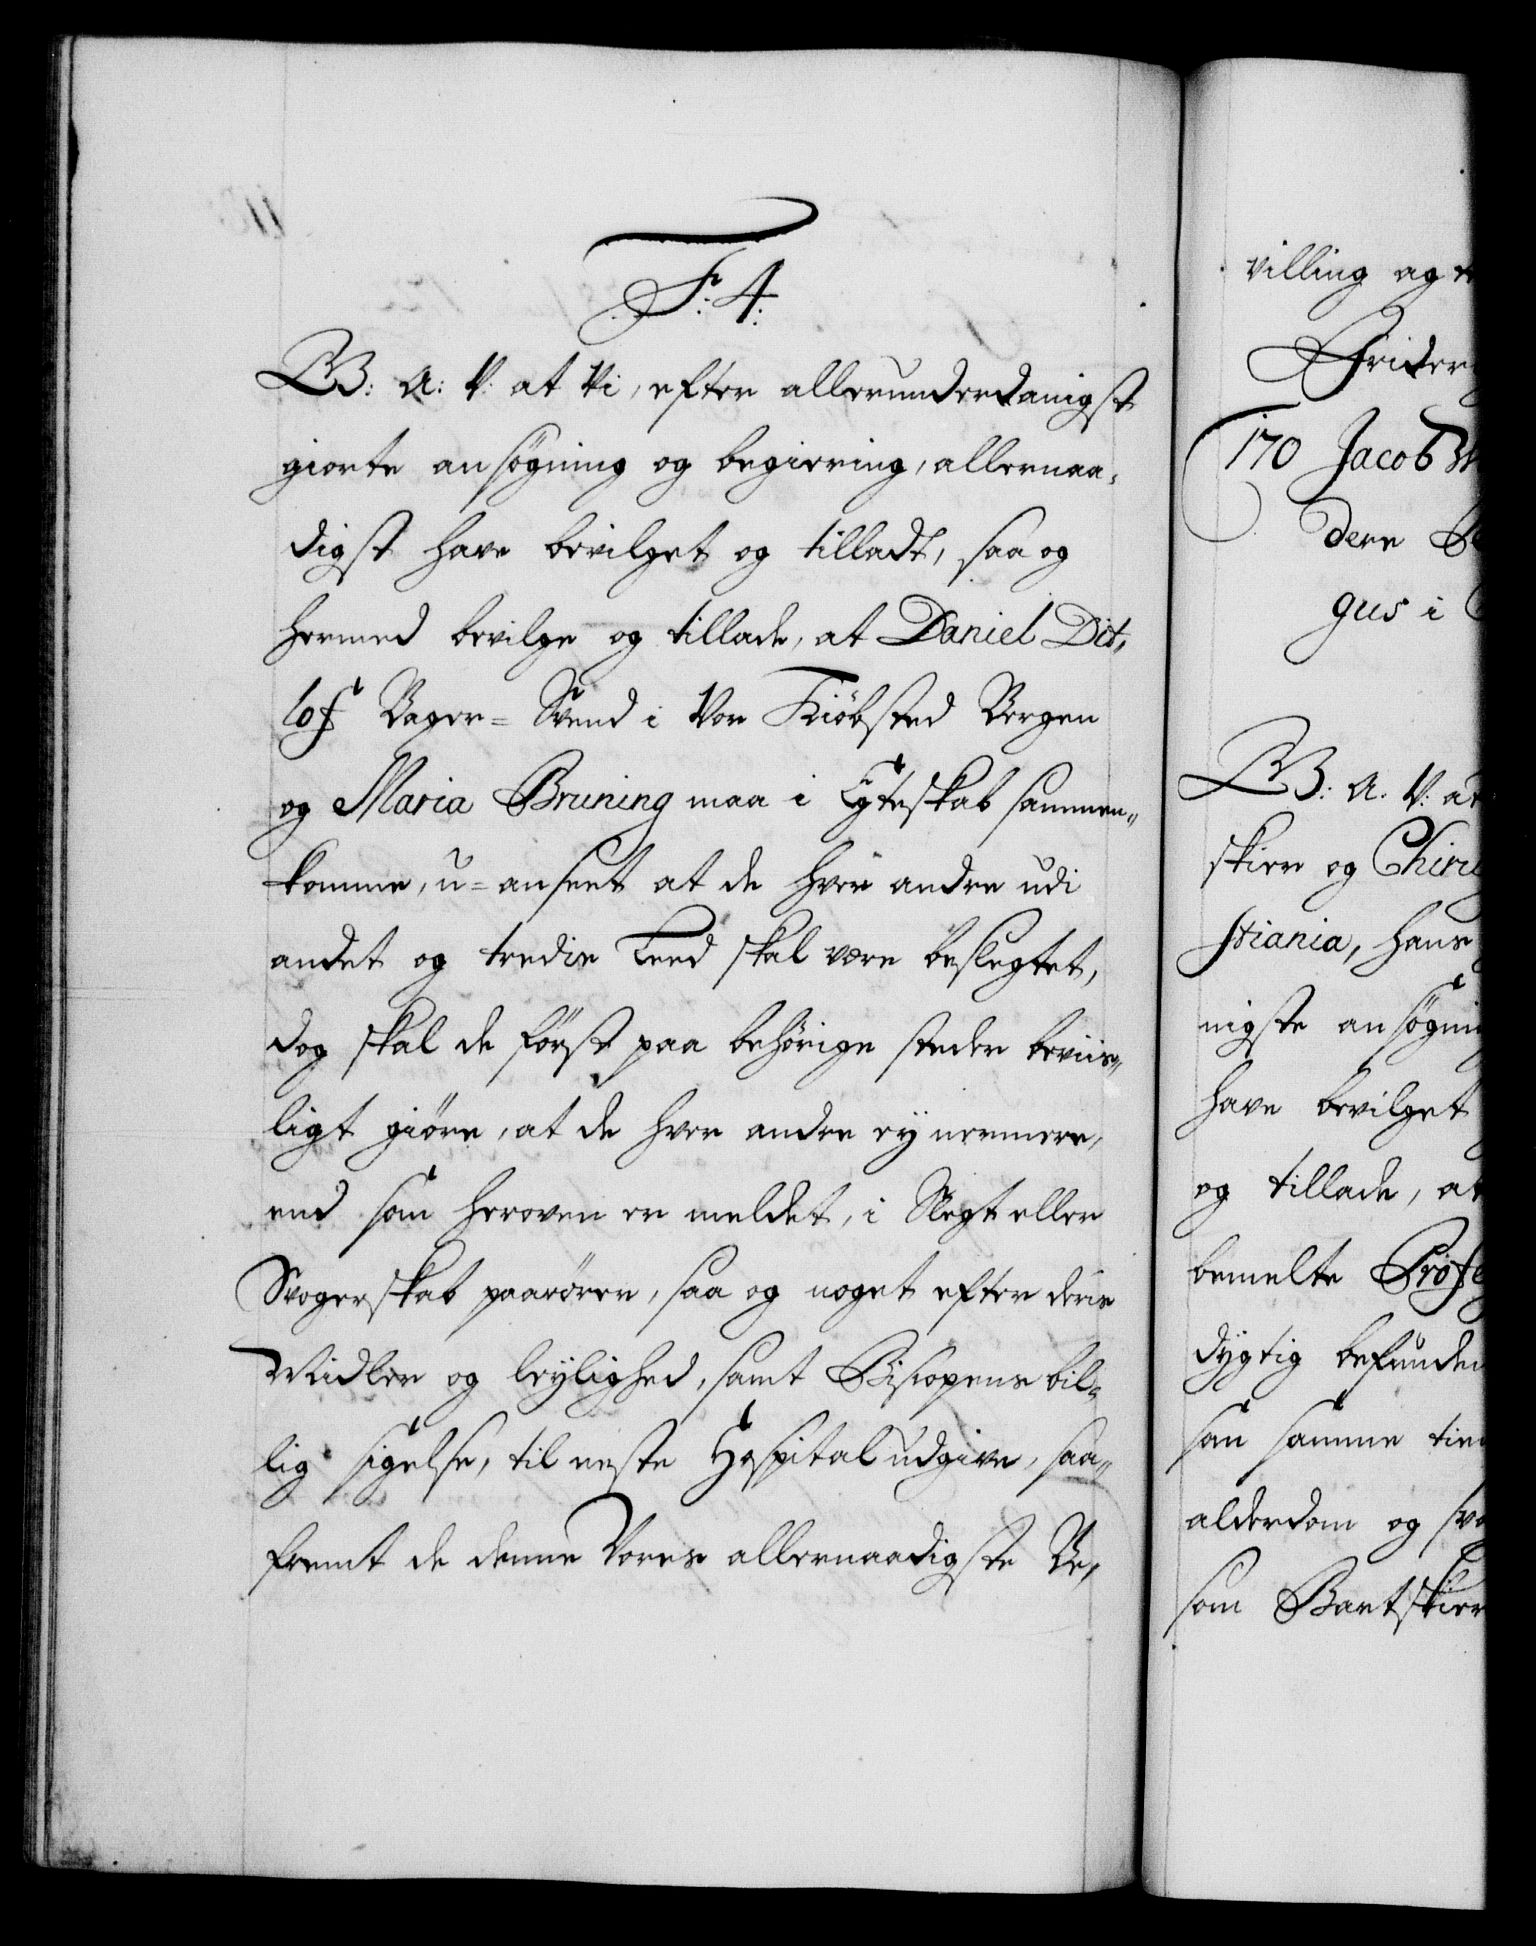 F: 4.
G: A: V: at Vi, efter allerunderdanigst
giorte ansøgning og begiering, allernaa-
digst have bevilget og tilladt, saa og
hermed bevilge og tillade, at Daniel Dit,
lof Bager= Svend i Vor Kiøbsted Bergen
og Maria Bruning maa i Egteskab sammen-
komme, u=anseet at de hver andre udi
andet og tredie Leed skal være beslegtet,
dog skal de först paa behörige steder beviis-
ligt giöre, at de hver andre ey nermere,
end som heroven er meldet, i Slegt eller
Svogerskab paarörer, saa og noget efter deris
Midler og leylighed, samt Biscopens bil-
lig sigelse, til neste Hospital udgive, saa-
fremt de denne Vores allernaadigste Be,
villing agt
Frider
170 Jacob
dere
gus i
B: A: V: at
skier og Chiru
stiania, hans
nigste ansøgni
have bevilget
og tillade, at
bemelte Profe
dygtig befunden
som samme tie
alderdom og sva
som Bartskier